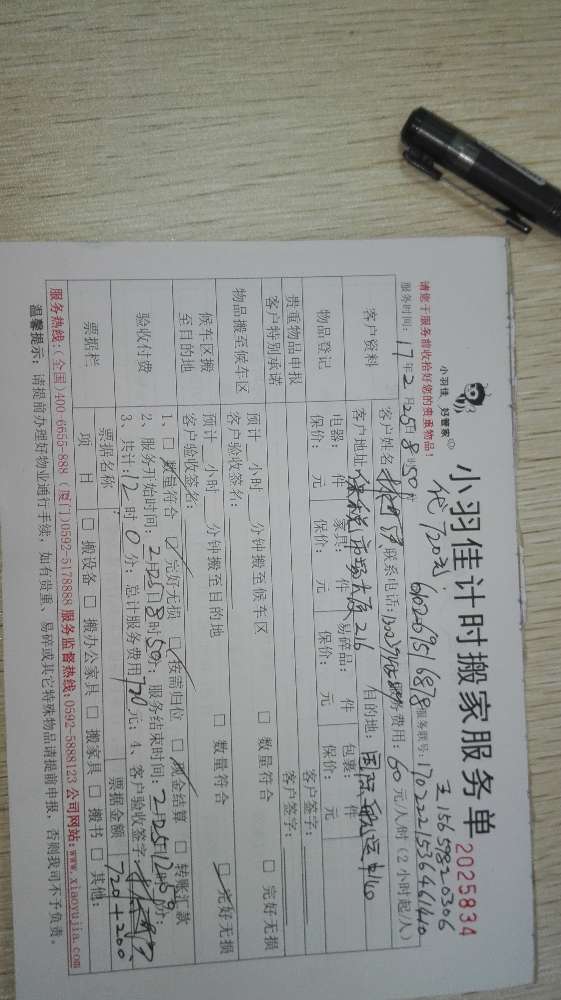 小羽佳 好管家
小羽佳计时搬家服务单
2025834
请您于服务前收拾好您的贵重物品！
代720元
王15659820306
服务时间：17年2月25日8时50分
服务联号：
客户资料
客户姓名：
联系电话：
服务费用：60元/人/时（2小时起/人）
客户地址：保税市场大厦216
目的地：国际航运中心
物品登记
电器：件
家具：件
易碎品：件
包裹：件
保价：元
保价：元
保价：元
保价：元
贵重物品申报
客户签字：
客户特别承诺
客户签字：
物品搬至候车区
预计 小时 分钟搬至候车区
□ 数量符合
□ 完好无损
客户验收签名：
候车区搬至目的地
预计 小时 分钟搬至目的地
□ 数量符合
□ 完好无损
客户验收签名：
验收付费
1、□ 数量符合 □ 完好无损 □ 按需归位 □ 现金结算 □ 转账汇款
2、服务开始时间：2月25日8时50分；服务结束时间：2月25日12时50分；
3、共计：12时0分；总计服务费用720元；4、客户验收签字：
票据栏
票据名称：
票据金额
720+200
项目
□ 搬设备 □ 搬办公家具 □ 搬家具 □ 搬书 □ 其他：
服务热线：（全国）400-6655-888（厦门）0592-5178888 服务监督热线：0592-5888123 公司网站：www.xiaoyujia.com
温馨提示：请提前办理好物业通行手续，如有贵重、易碎或其它特殊物品请提前申报，否则我司不予负责。